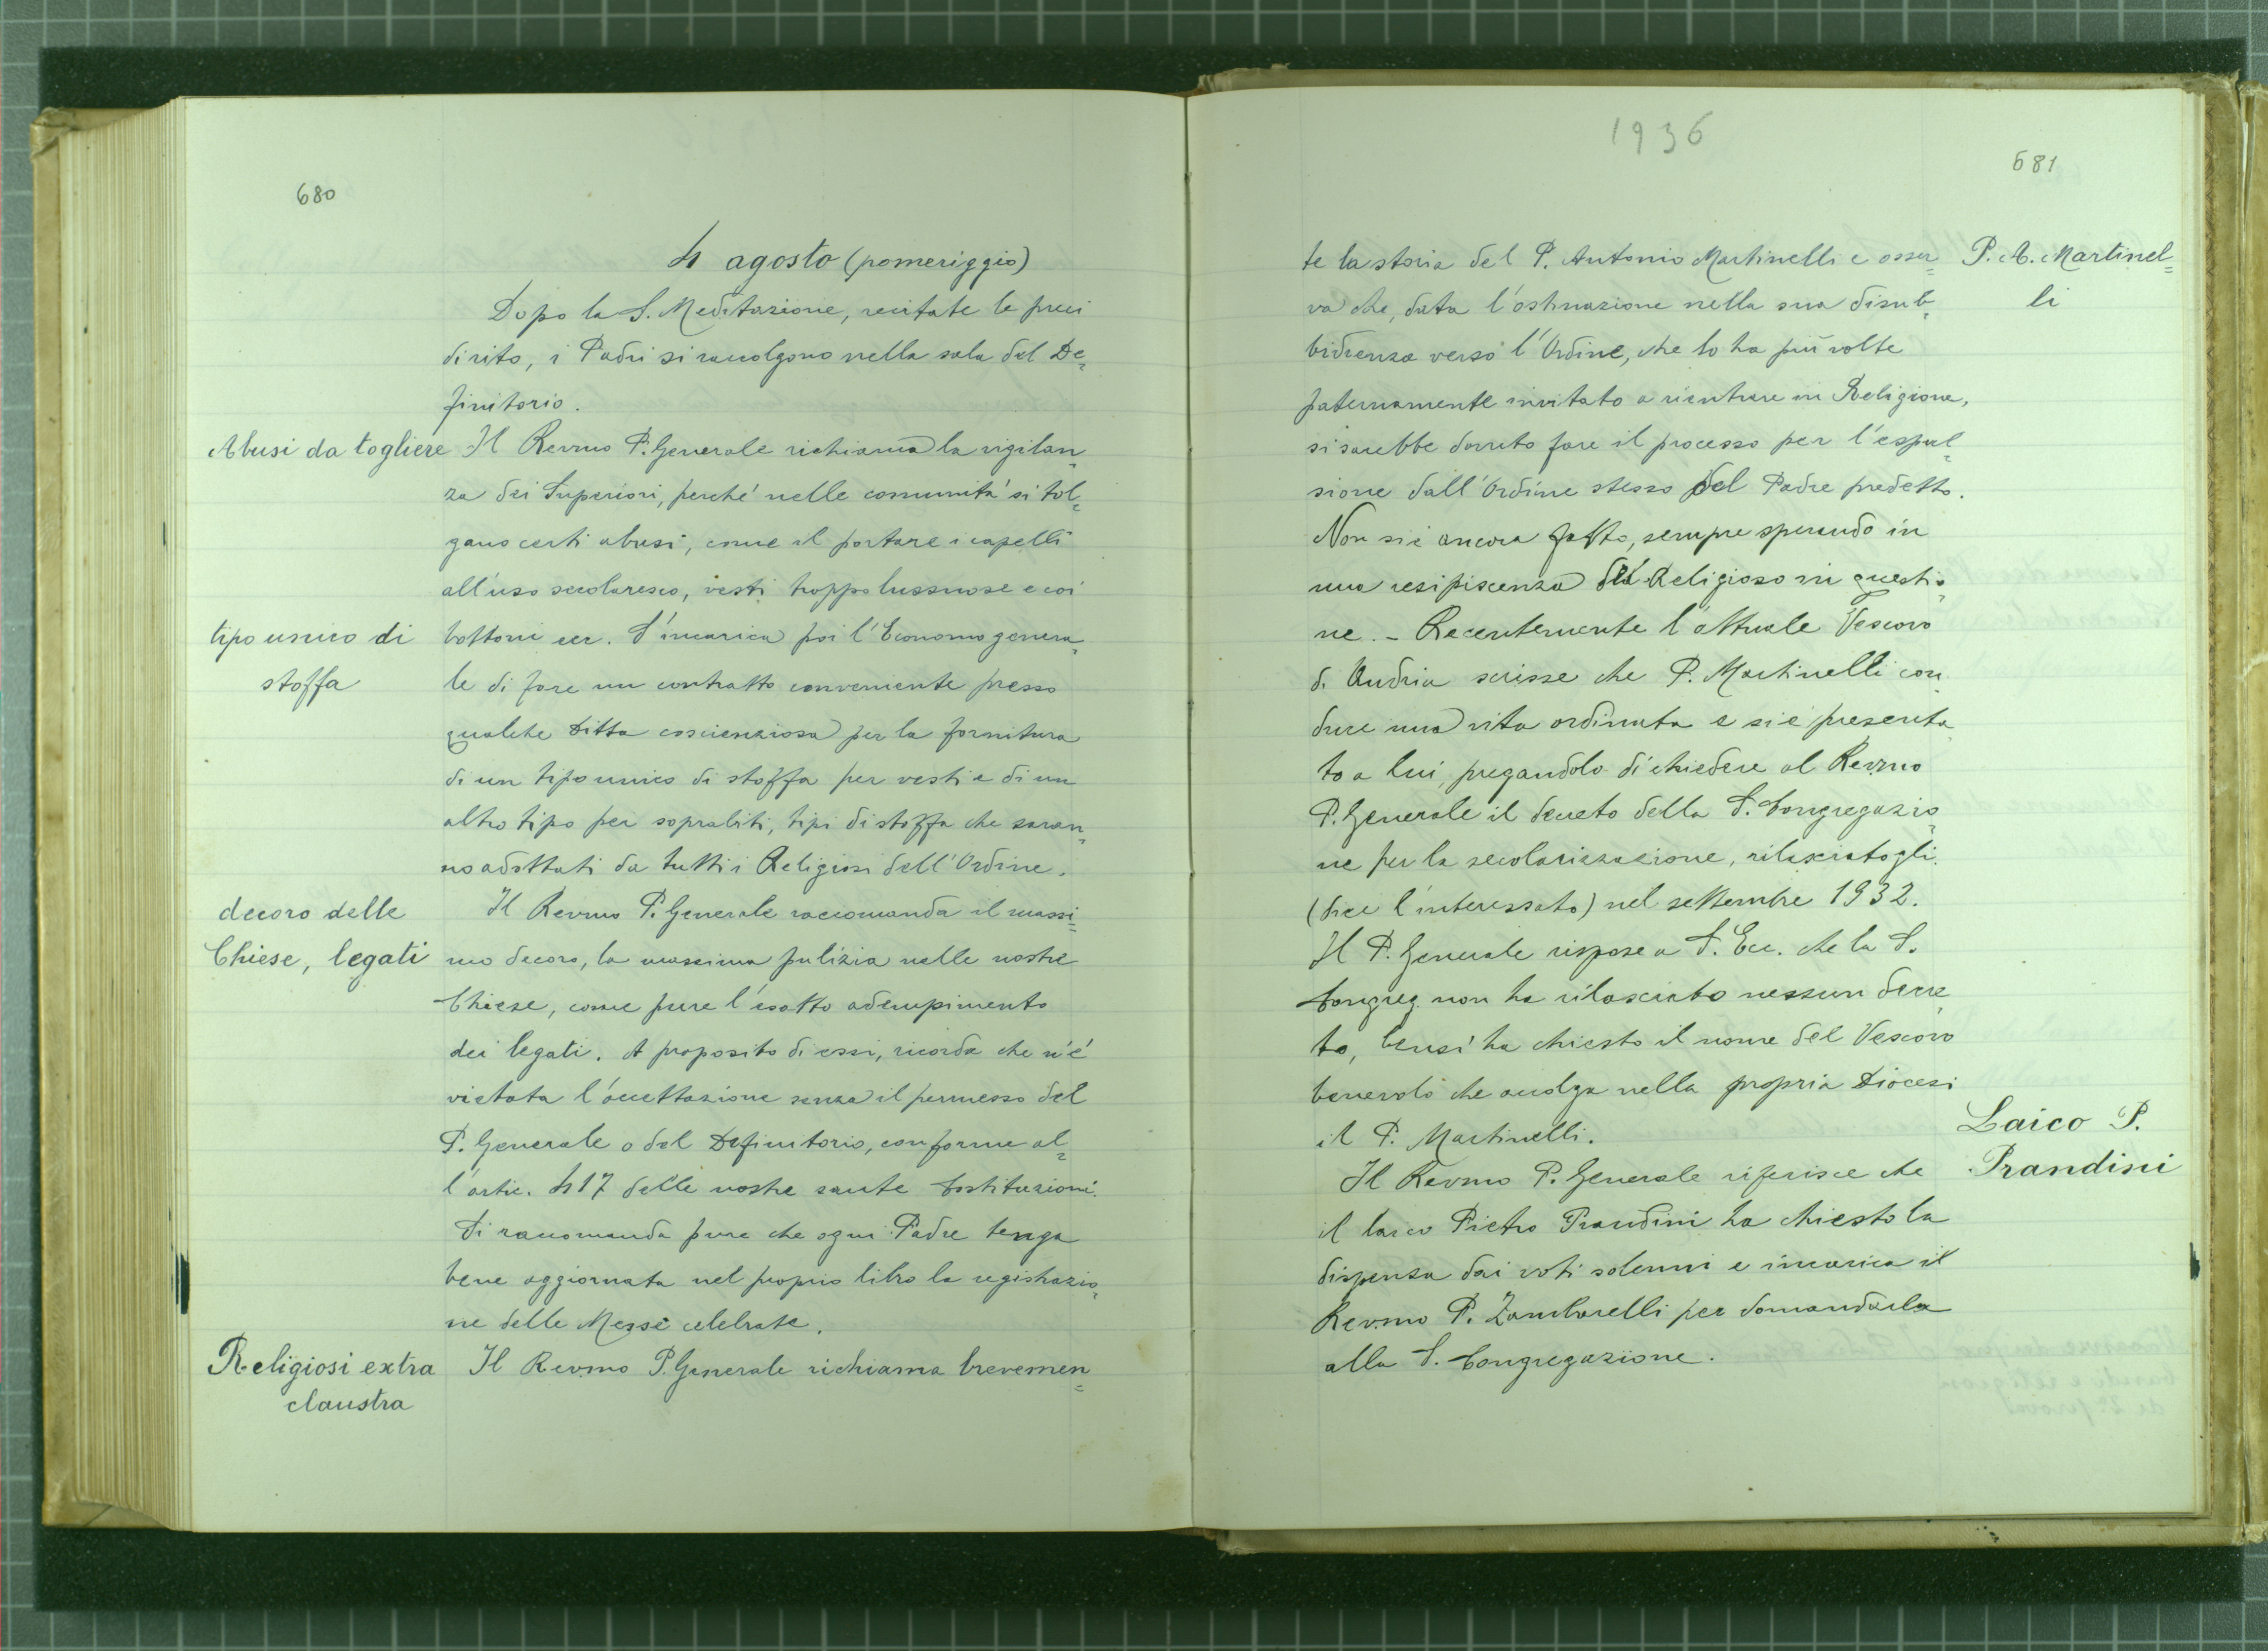 680
4 agosto (pomeriggio)
Dopo la S. Meditazione, recitate le preci
di rito, i Padri si raccolgono nella sala del De=
finitorio.
Abusi da togliere
Il Revmo P. Generale richiama la vigilan=
za dei Superiori, perché nelle comunità si tol=
gano certi abusi, come il portare i capelli
all'uso secolaresco, vesti troppo lussuose e coi
tipo unico di
stoffa
bottoni ecc. S'incarica poi l'Economo genera=
le di fare un contratto conveniente presso
qualche Ditta coscienziosa per la fornitura
di un tipo unico di stoffa per vesti e di un
altro tipo per soprabiti, tipi di stoffa che saran=
no adottati da tutti i Religiosi dell'Ordine.
decoro delle
Chiese, legati
Il Revmo P. Generale raccomanda il massi=
mo decoro, la massima pulizia nelle nostre
Chiese, come pure l'esatto adempimento
dei legati. A proposito di essi, ricorda che n'è
vietata l'accettazione senza il permesso del
P. Generale o del Definitorio, conforme al=
l'artic. 417 delle nostre sante Costituzioni.
Si raccomanda pure che ogni Padre tenga
bene aggiornata nel proprio libro la registrazio=
ne delle Messe celebrate.
Religiosi extra
claustra
Il Revmo P. Generale richiama brevemen=
1936
681
te la storia del P. Antonio Martinelli e osser=
P. A. Martinel=
li
va che, data l'ostinazione nella sua disub=
bidienza verso l'Ordine, che lo ha più volte
paternamente invitato a rientrare in Religione,
si sarebbe dovuto fare il processo per l'espul=
sione dall'Ordine stesso del Padre predetto.
Non si è ancora fatto, sempre sperando in
una resipiscenza del Religioso in questio=
ne. - Recentemente l'attuale Vescovo
di Andria scrisse che P. Martinelli con
duce una vita ordinata e si è presenta
to a lui, pregandolo di chiedere al Revmo
P. Generale il decreto della S. Congregazio=
ne per la secolarizzazione, rilasciatogli
(dice l'interessato) nel settembre 1932.
Il P. Generale rispose a S. Ecc. che la S.
Congreg. non ha rilasciato nessun decre
to, bensì ha chiesto il nome del Vescovo
benevolo che accolga nella propria Diocesi
il P. Martinelli.
Laico P.
Prandini
Il Revmo P. Generale riferisce che
il laico Pietro Prandini ha chiesto la
dispensa dai voti solenni e incarica il
Revmo P. Zambarelli per domandarla
alla S. Congregazione.